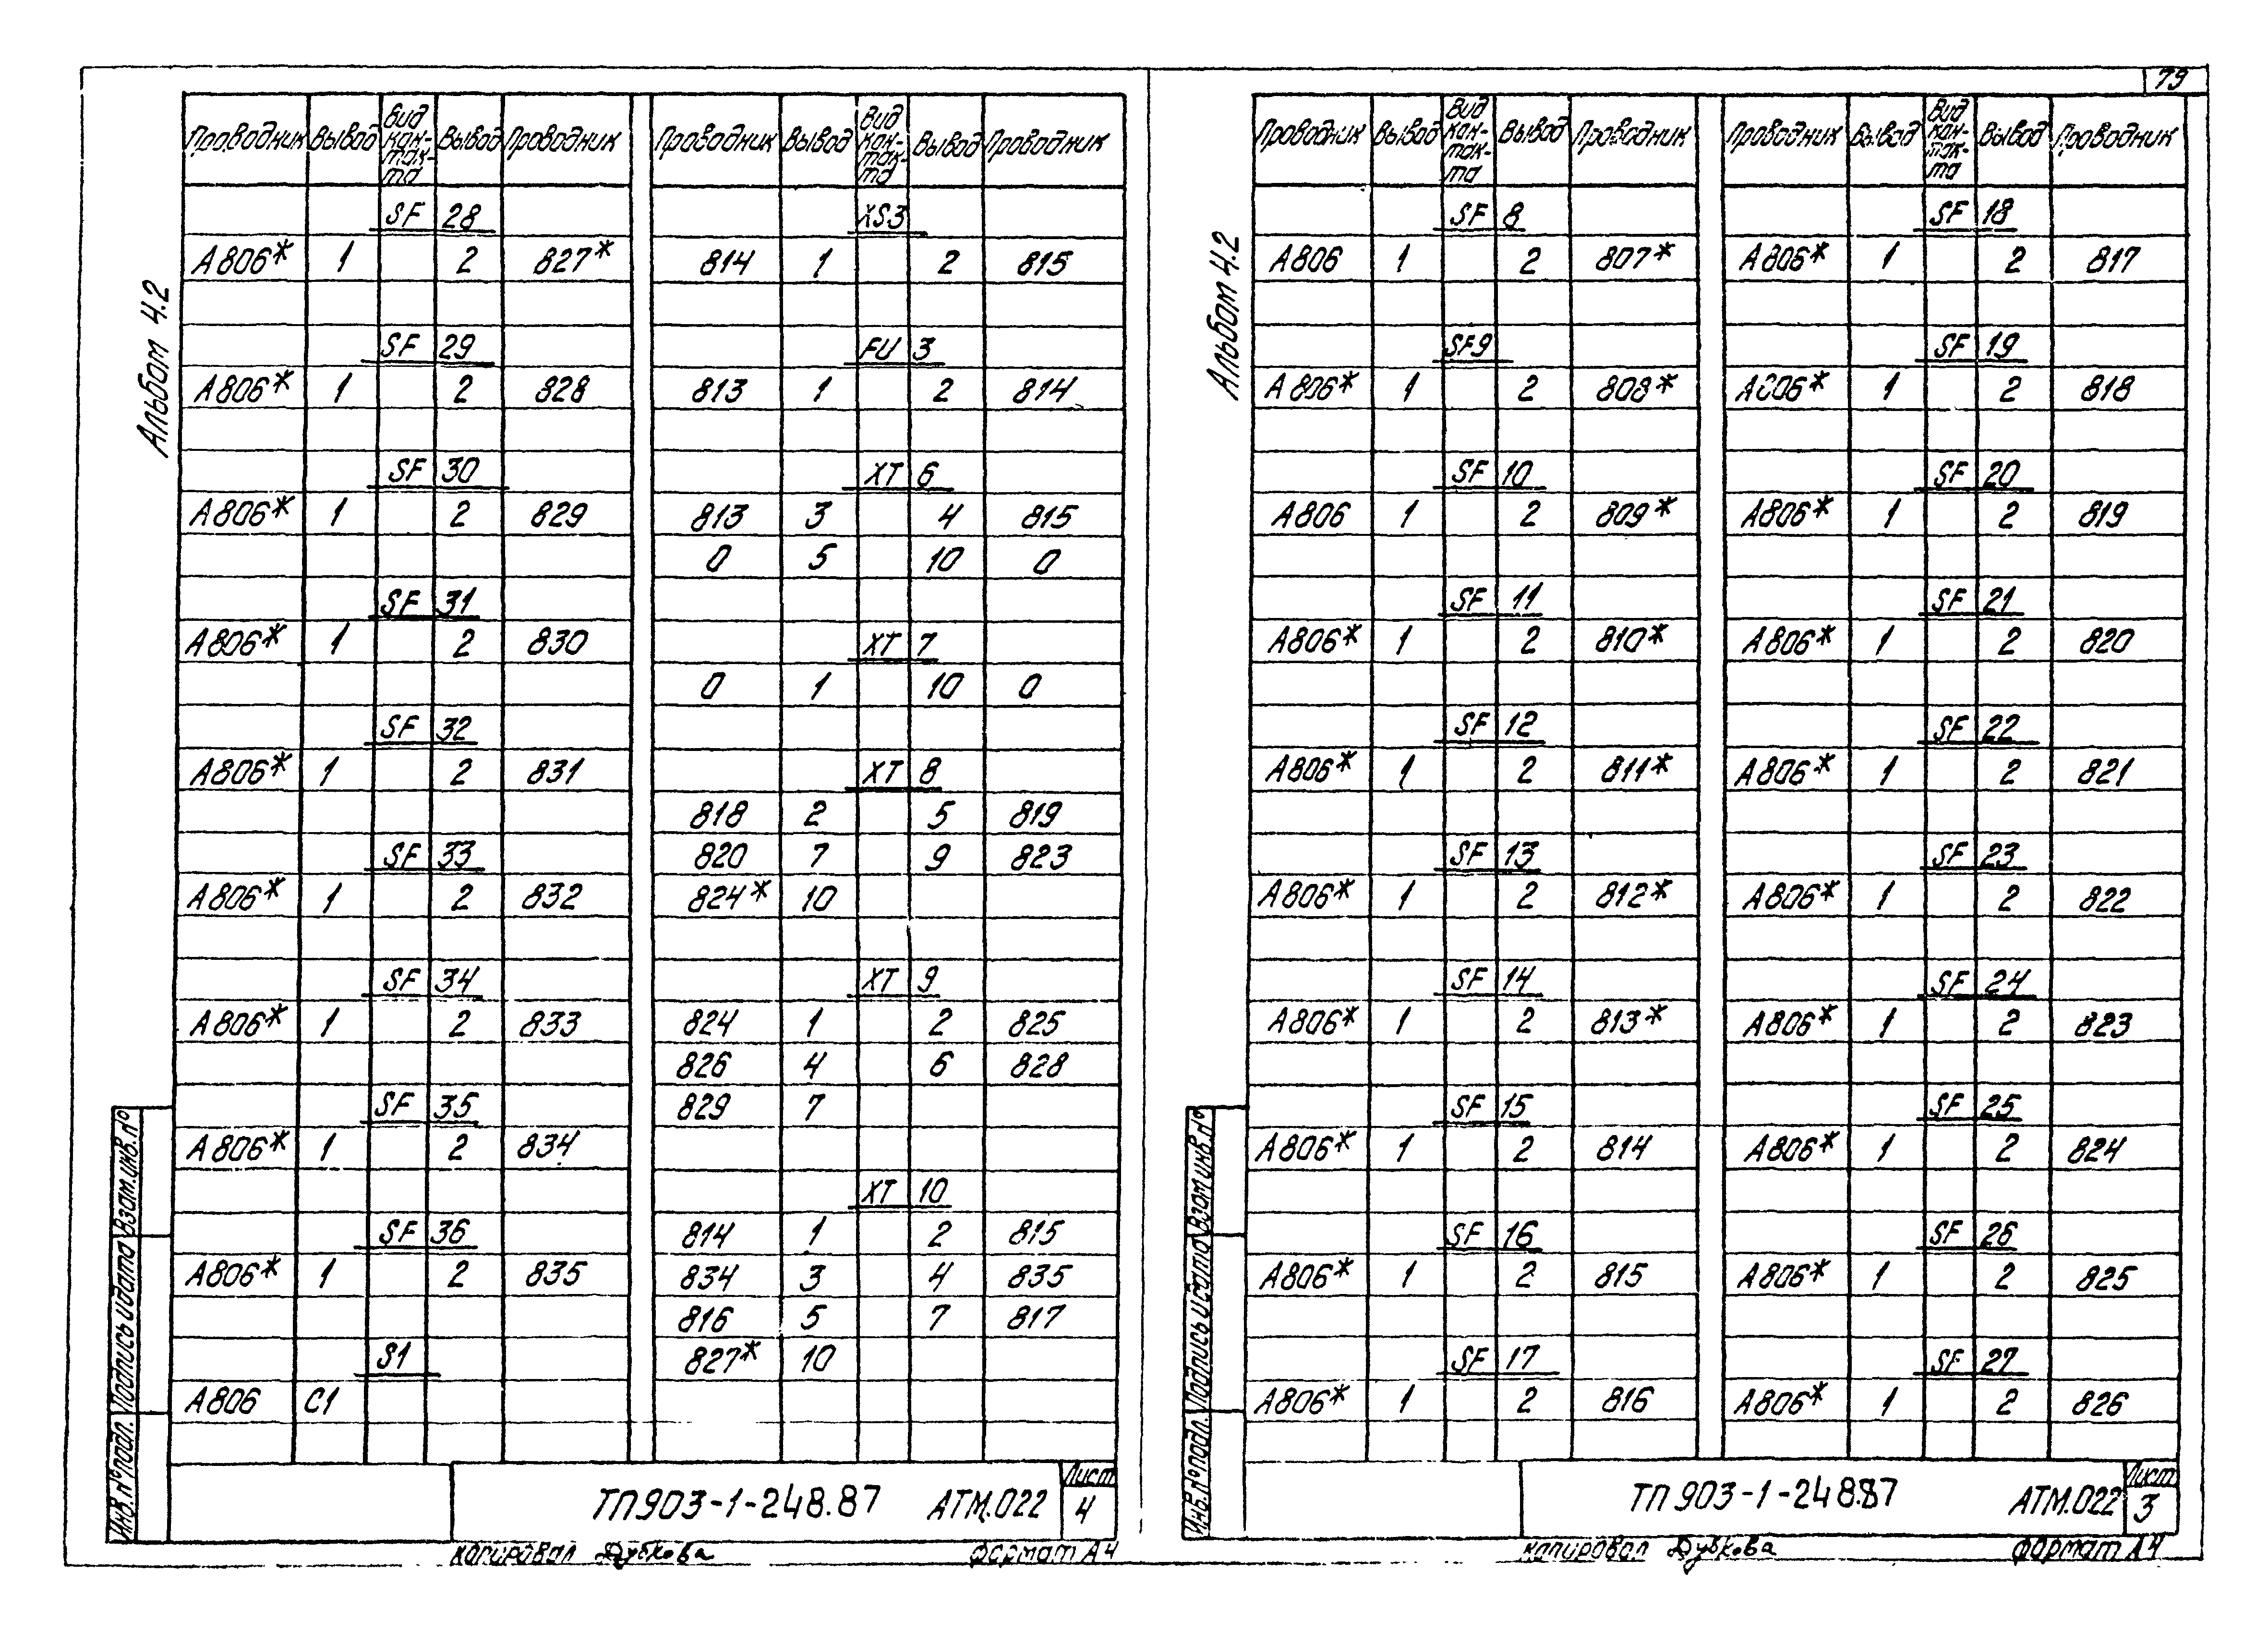 79
Альбом 4.2
Проводник Вывод Вид кон- так- та Вывод Проводник
SF 28
А806* 1 2 827*
SF 29
А806* 1 2 828
SF 30
А806* 1 2 829
SF 31
А806* 1 2 830
SF 32
А806* 1 2 831
SF 33
А806* 1 2 832
SF 34
А806* 1 2 833
SF 35
А806* 1 2 834
SF 36
А806* 1 2 835
S1
А806 С1
Проводник Вывод Вид кон- так- та Вывод Проводник
XS3
814 1 2 815
FU 3
813 1 2 814
XT 6
813 3 4 815
0 5 10 0
XT 7
0 1 10 0
XT 8
818 2 5 819
820 7 9 823
824* 10
XT 9
824 1 2 825
826 4 6 828
829 7
XT 10
814 1 2 815
834 3 4 835
816 5 7 817
827* 10
Инв.№подл. Подпись и дата Взам.инв.№
ТП903-1-248.87 АТМ.022
Лист
4
Копировал Дубкова Формат А4
Альбом 4.2
Проводник Вывод Вид кон- так- та Вывод Проводник
SF 8
А806 1 2 807*
SF9
А806* 1 2 808*
SF 10
А806 1 2 809*
SF 11
А806* 1 2 810*
SF 12
А806* 1 2 811*
SF 13
А806* 1 2 812*
SF 14
А806* 1 2 813*
SF 15
А806* 1 2 814
SF 16
А806* 1 2 815
SF 17
А806* 1 2 816
Проводник Вывод Вид кон- так- та Вывод Проводник
SF 18
А806* 1 2 817
SF 19
А806* 1 2 818
SF 20
А806* 1 2 819
SF 21
А806* 1 2 820
SF 22
А806* 1 2 821
SF 23
А806* 1 2 822
SF 24
А806* 1 2 823
SF 25
А806* 1 2 824
SF 26
А806* 1 2 825
SF 27
А806* 1 2 826
Инв.№подл. Подпись и дата Взам.инв.№
ТП903-1-248.87 АТМ.022
Лист
3
Копировал Дубкова Формат А4